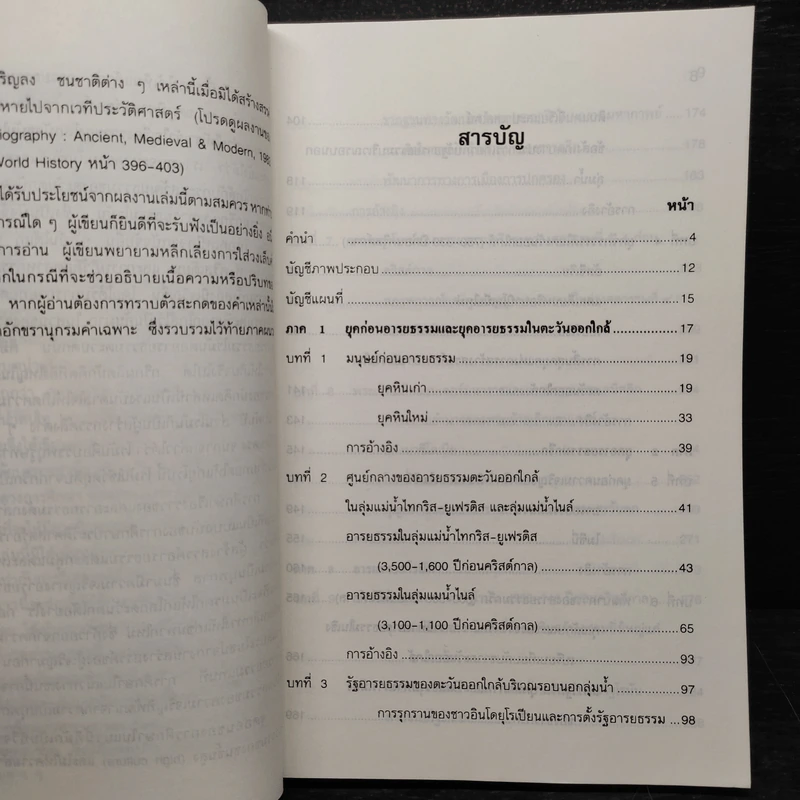 ริญลง ชนชาติต่าง ๆ เหล่านี้เมื่อมิได้สร้างสรร
หายไปจากเวทีประวัติศาสตร์ (โปรดดูผลงานของ
iography : Ancient, Medieval & Modern, 198
World History หน้า 396-403)
ได้รับประโยชน์จากผลงานเล่มนี้ตามสมควร หากท่า
ารณ์ใด ๆ ผู้เขียนก็ยินดีที่จะรับฟังเป็นอย่างยิ่ง
การอ่าน ผู้เขียนพยายามหลีกเลี่ยงการใส่วงเล็บ
กในกรณีที่จะช่วยอธิบายเนื้อความหรือปริบท
หากผู้อ่านต้องการทราบตัวสะกดของคำเหล่านี้
อักขรานุกรมคำเฉพาะ ซึ่งรวบรวมไว้ท้ายภาคผน
สารบัญ
หน้า
คำนำ ........ 4
บัญชีภาพประกอบ ........ 12
บัญชีแผนที่ ........ 15
ภาค 1 ยุคก่อนอารยธรรมและยุคอารยธรรมในตะวันออกใกล้ ........ 17
บทที่ 1 มนุษย์ก่อนอารยธรรม ........ 19
ยุคหินเก่า ........ 19
ยุคหินใหม่ ........ 33
การอ้างอิง ........ 39
บทที่ 2 ศูนย์กลางของอารยธรรมตะวันออกใกล้
ในลุ่มแม่น้ำไทกริส-ยูเฟรติส และลุ่มแม่น้ำไนล์ ........ 41
อารยธรรมในลุ่มแม่น้ำไทกริส-ยูเฟรติส
(3,500-1,600 ปีก่อนคริสต์กาล) ........ 43
อารยธรรมในลุ่มแม่น้ำไนล์
(3,100-1,100 ปีก่อนคริสต์กาล) ........ 65
การอ้างอิง ........ 93
บทที่ 3 รัฐอารยธรรมของตะวันออกใกล้บริเวณรอบนอกลุ่มน้ำ ........ 97
การรุกรานของชาวอินโดยุโรเปียนและการตั้งรัฐอารยธรรม ... 98